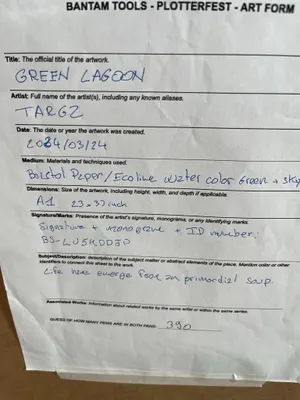 BANTAM TOOLS - PLOTTERFEST - ART FORM
Title: The official title of the artwork.
GREEN LAGOON
Artist: Full name of the artist(s), including any known aliases.
TARGZ
Date: The date or year the artwork was created.
2024/03/24
Medium: Materials and techniques used.
Bristol Paper/Ecoline water color Green + sky
Dimensions: Size of the artwork, including height, width, and depth if applicable.
A1 23 × 33 inch
Signature/Marks: Presence of the artist's signature, monograms, or any identifying marks.
Signature + monograme + ID number:
Subject/Description: description of the subject matter or abstract elements of the piece. Mention color or other identifiers to connect this sheet to the work.
Life here emerge from an primordial soup.
Associated Works: Information about related works by the same artist or within the same series.
GUESS OF HOW MANY PENS ARE IN BOTH 390